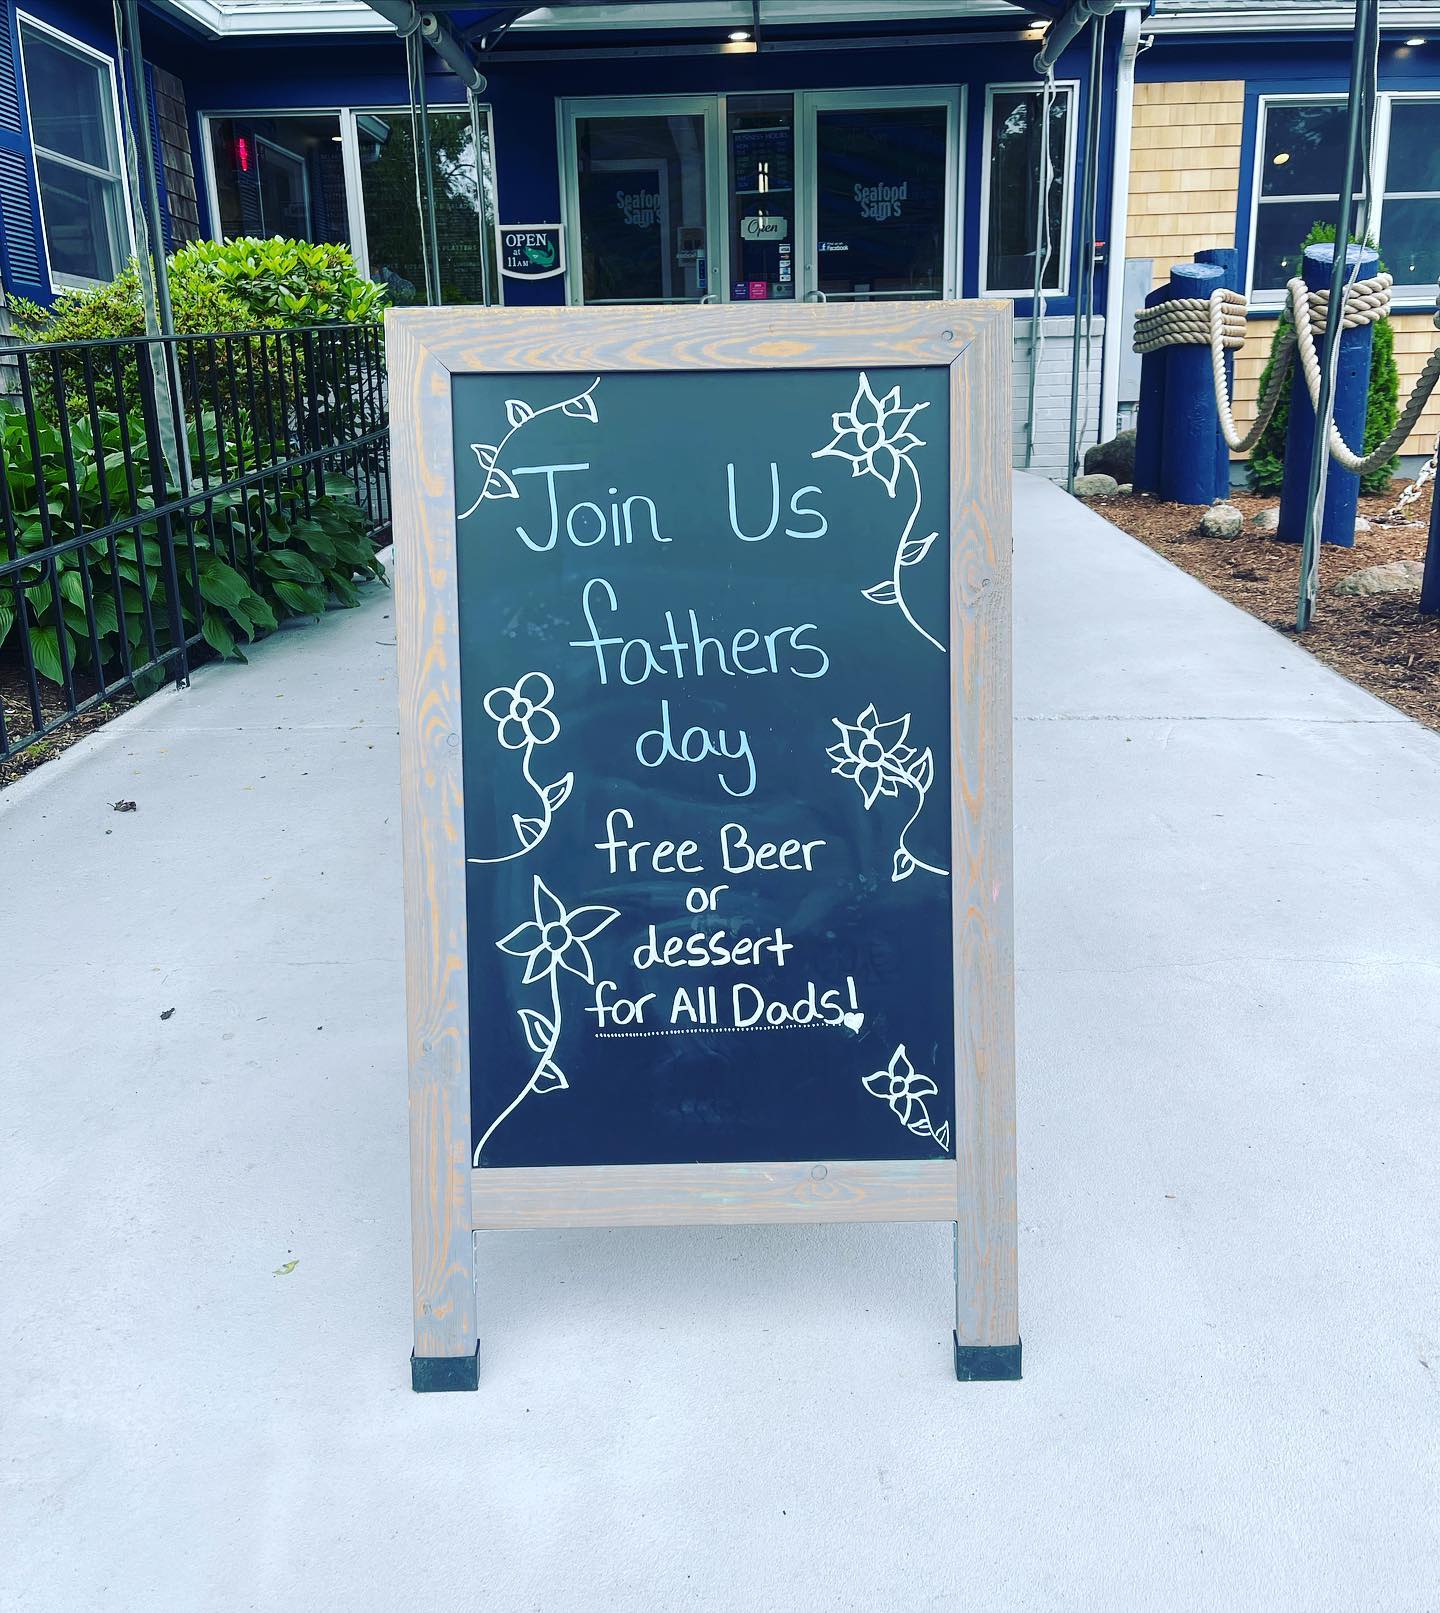 Seafood
Sam's
Seafood
Sam's
BUSINESS HOURS
Open
Facebook
OPEN
at
11AM
Join Us
fathers
day
free Beer
or
dessert
for All Dads!